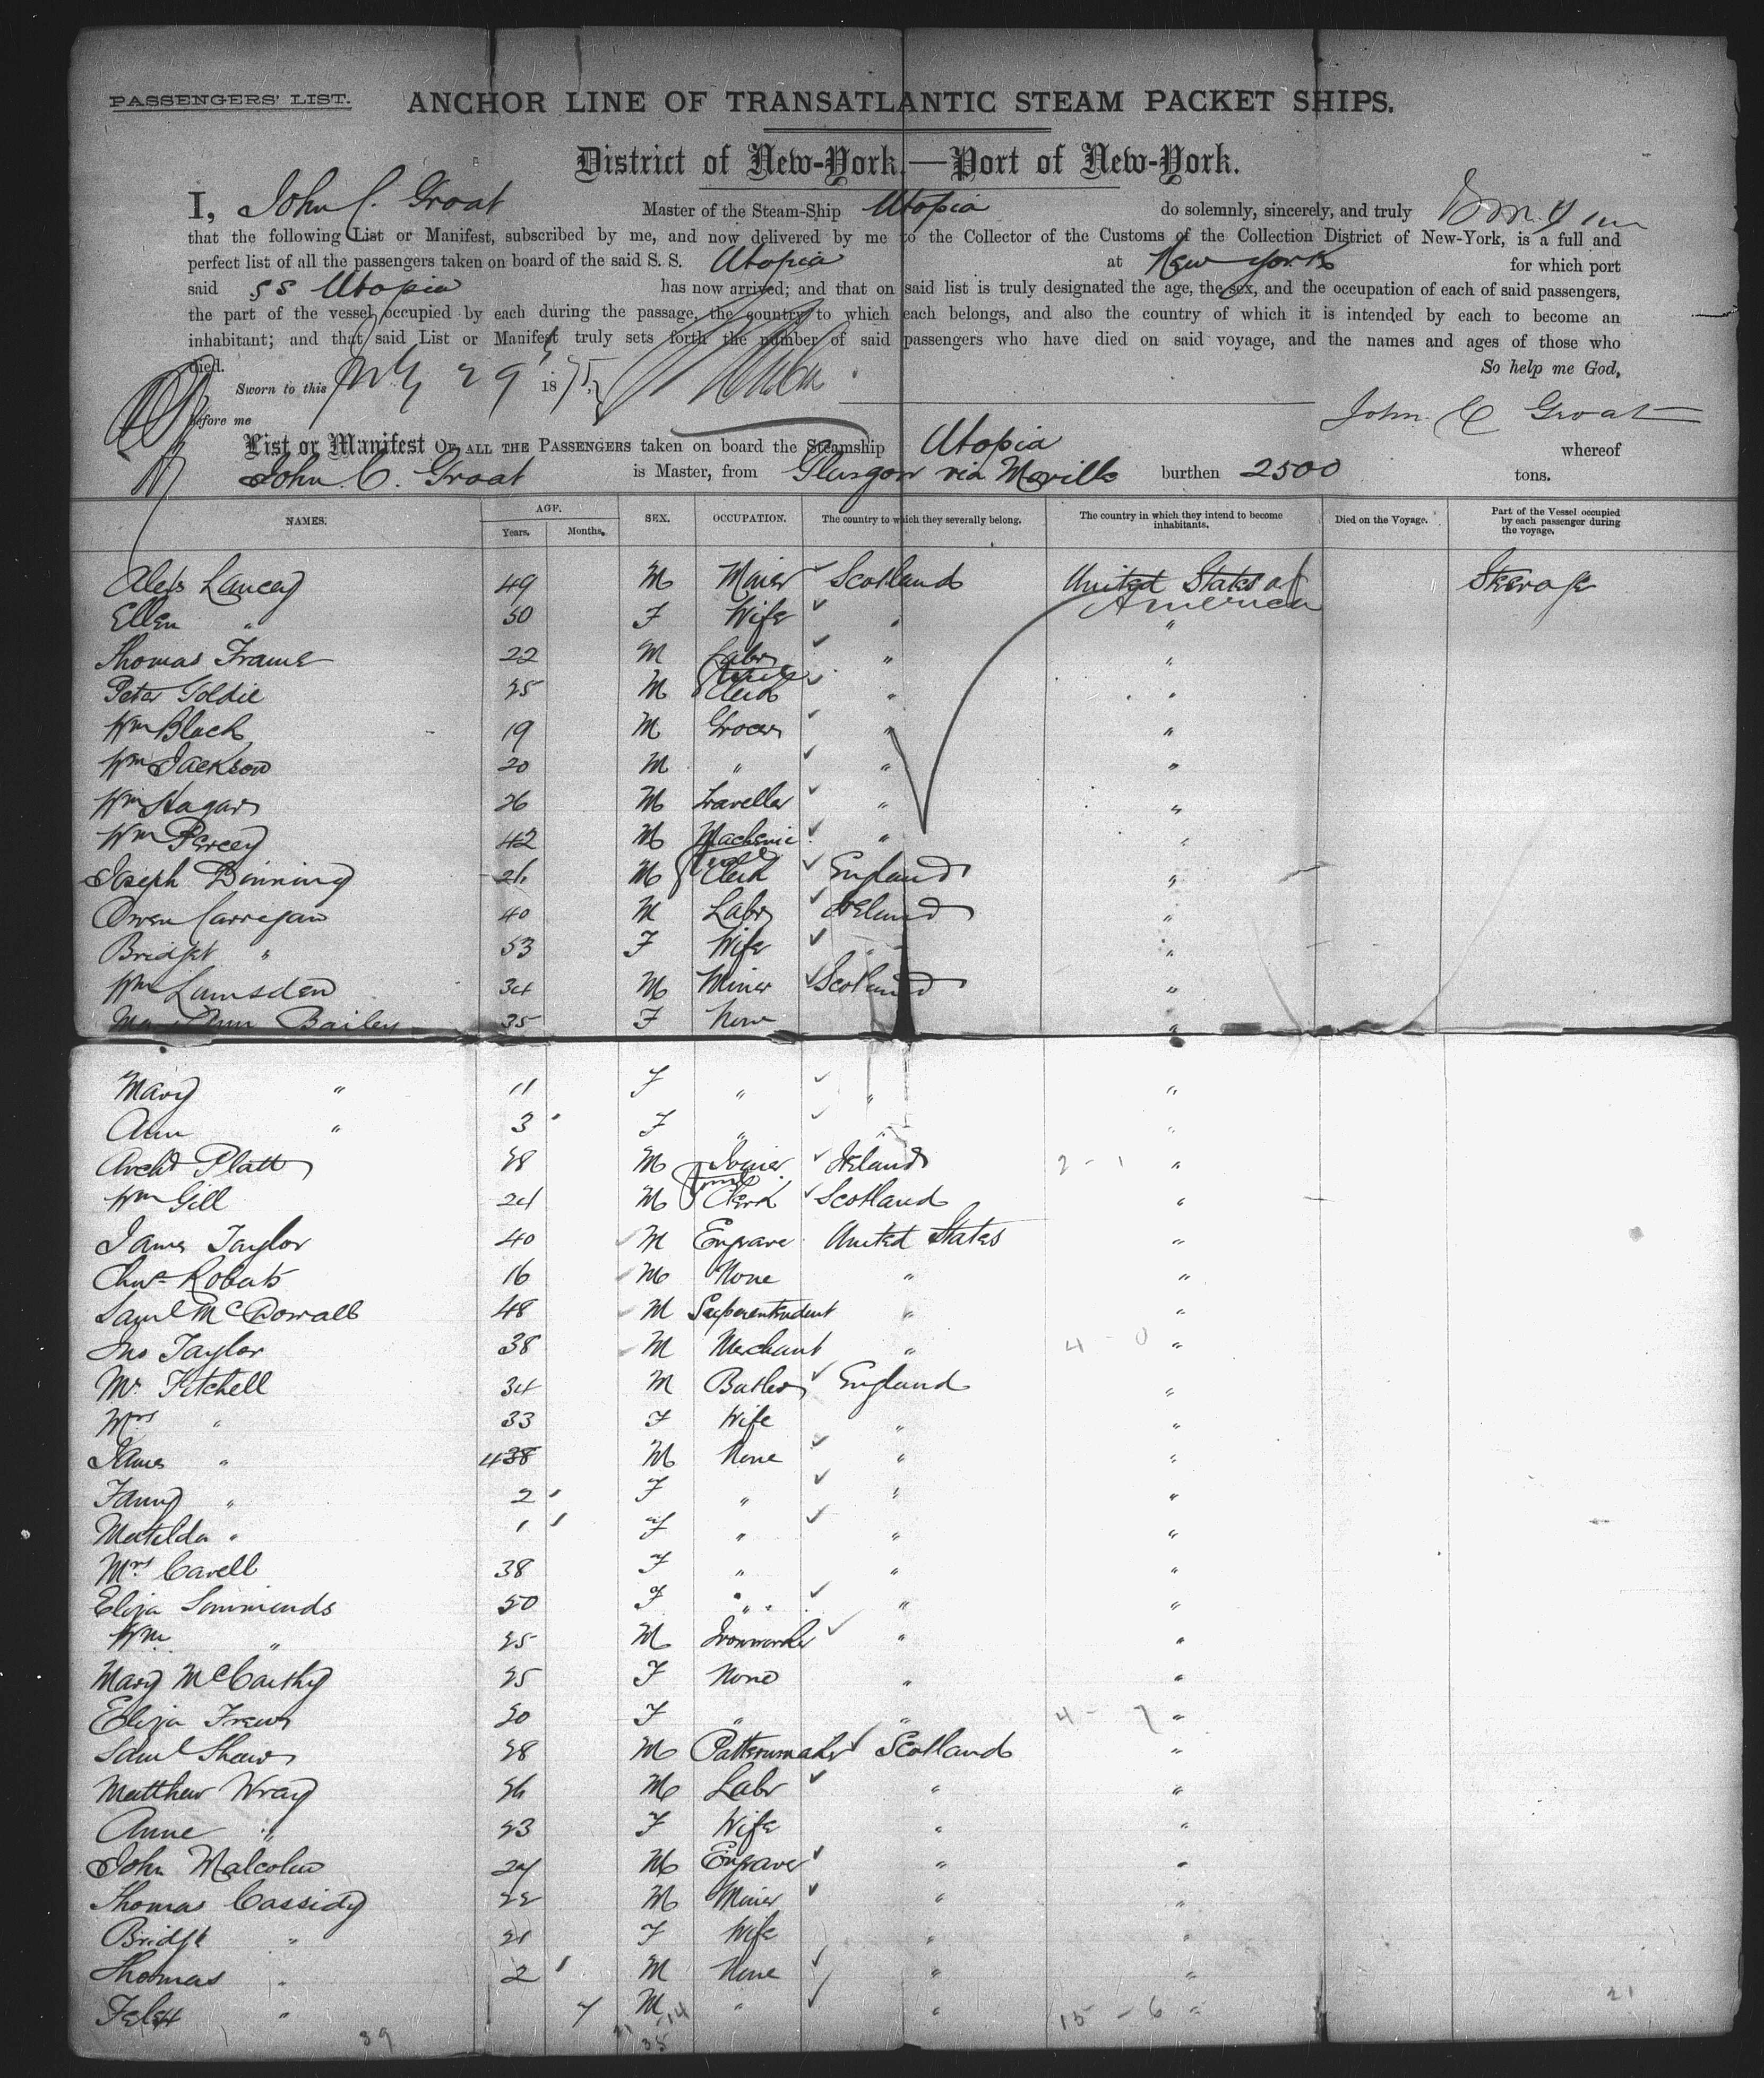 PASSENGERS' LIST.
ANCHOR LINE OF TRANSATLANTIC STEAM PACKET SHIPS.
District of New-York,—Port of New-York.
I, John C. Groat Master of the Steam-Ship Utopia do solemnly, sincerely, and truly
that the following List or Manifest, subscribed by me, and now delivered by me to the Collector of the Customs of the Collection District of New-York, is a full and
perfect list of all the passengers taken on board of the said S. S. Utopia at New York for which port
said SS Utopia has now arrived; and that on said list is truly designated the age, the sex, and the occupation of each of said passengers,
the part of the vessel occupied by each during the passage, the country to which each belongs, and also the country of which it is intended by each to become an
inhabitant; and that said List or Manifest truly sets forth the number of said passengers who have died on said voyage, and the names and ages of those who
died. So help me God,
Sworn to this July 29 1875
Before me John C Groat
List or Manifest OF ALL THE PASSENGERS taken on board the Steamship Utopia whereof
John C. Groat is Master, from Glasgow via Moville burthen 2500 tons.
NAMES. AGE. Years. Months. SEX. OCCUPATION. The country to which they severally belong. The country in which they intend to become inhabitants. Died on the Voyage. Part of the Vessel occupied by each passenger during the voyage.
Alex Lancey 49 M Miner Scotland United States of America Steerage
Ellen " 50 F Wife " "
Thomas Frame 22 M Labr " "
Peter Goldie 25 M Clerk " "
Wm Black 19 M Grocer " "
Wm Jackson 20 M " " "
Wm Hagar 26 M Traveller " "
Wm Percey 42 M Mechanic " "
Joseph Dinning 26 M Clerk England "
Owen Carrigan 40 M Labr Ireland "
Bridget " 53 F Wife " "
Wm Lumsden 34 M Miner Scotland "
Ann Bailey 35 F None "
Mary " 11 F " " "
Ann " 3 F " " "
Archd Platt 28 M Joiner Ireland 2 - 1 "
Wm Gill 24 M Clerk Scotland "
James Taylor 40 M Engraver United States "
Chas Robats 16 M None " "
Saml McDowall 48 M Superentendent " "
Jno Taylor 38 M Merchant " 4 - 0 "
Mr Fitchell 34 M Butler England "
Mrs " 33 F Wife " "
James " M None " "
Fanny " 2 F " " "
Matilda " 1 F " " "
Mrs Cavell 38 F " " "
Eliza Simminds 50 F " " "
Wm " 25 M Ironworker " "
Mary McCarthy 25 F None " "
Eliza Frew 20 F " " 4 - 7 "
Saml Shaw 28 M Patternmaker Scotland "
Matthew Wray 26 M Labr " "
Anne " 23 F Wife " "
John Malcolm 24 M Engraver " "
Thomas Cassidy 22 M Miner " "
Bridgt " 21 F Wife " "
Thomas " 2 M None " "
" 7 M " " 15 - 6 " 21
39 21 14
35